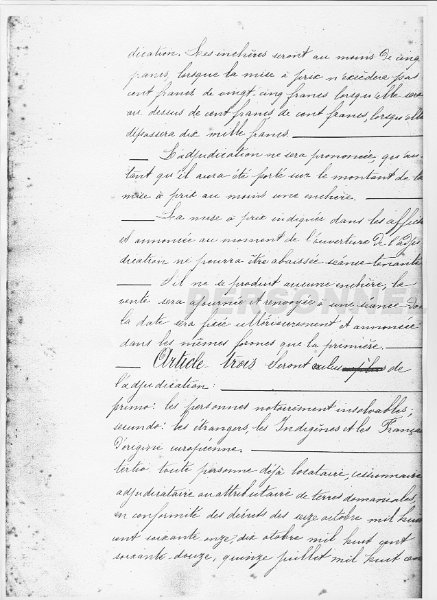 dication. Les enchères seront au moins de cinq
francs, lorsque la mise à prix n'excédera pas
cent francs de vingt-cinq francs lorsqu'elle sera
au dessus de cent francs de cent francs, lorsqu'elle
dépassera dix mille francs.
L'adjudication ne sera prononcée, qu'au-
tant qu'il aura été porté sur le montant de la
mise à prix au moins une enchère.
La mise à prix indiquée dans les affiches
et annoncée au moment de l'ouverture de l'adju
dication ne pourra être abaissée séance tenante
S'il ne se produit aucune enchère, la
vente sera ajournée et renvoyée à une séance dont
la date sera fixée ultérieurement et annoncée
dans les mêmes formes que la première.
Article trois Seront exclus de
l'adjudication:
primo: les personnes notoirement insolvables;
secundo: les étrangers, les Indigènes et les Français
d'origine européenne.
tertio toute personne déjà locataire, cessionnaire
adjudicataire ou attributaire de terres domaniales,
en conformité des décrets des onze octobre mil huit
cent soixante onze, dix octobre mil huit cent
soixante-douze, quinze juillet mil huit cent